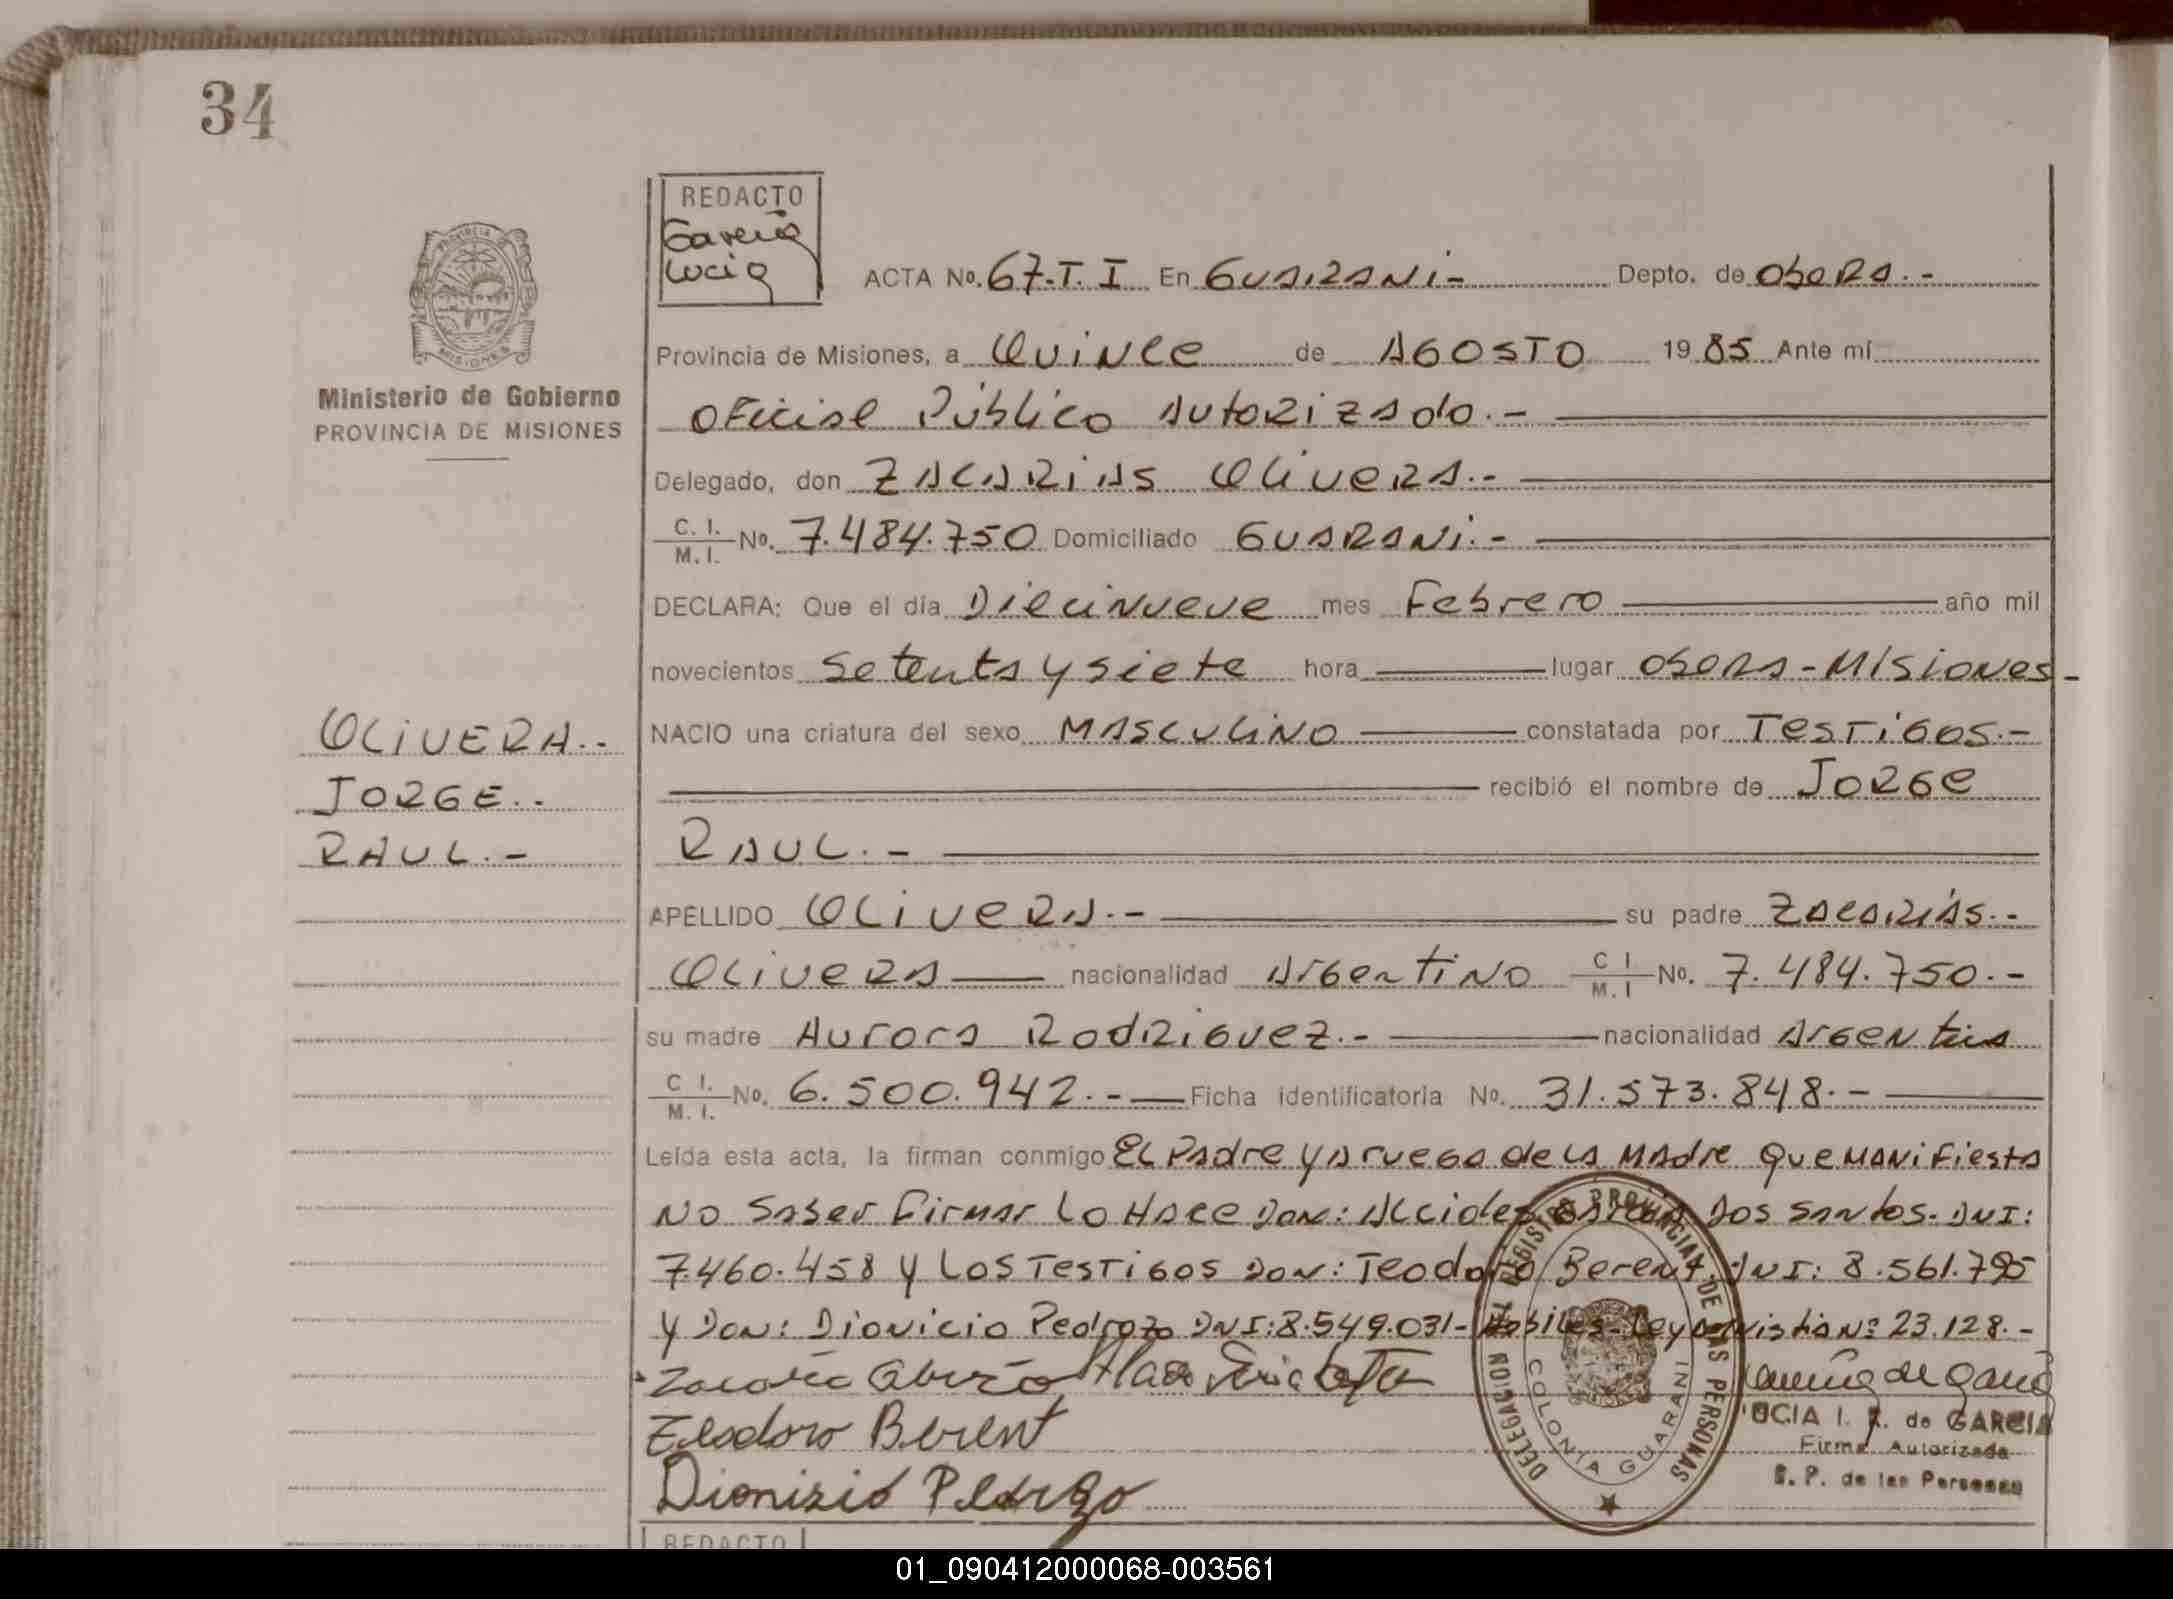 34
REDACTO
Garcia
Lucia
PROVINCIA DE
MISIONES
Ministerio de Gobierno
PROVINCIA DE MISIONES
ACTA No. 67.T.I En GUARANi- Depto. de OBERA.-
Provincia de Misiones, a QUINCE de AGOSTO 1985 Ante mí
OFicial Público AutoRizado.-
Delegado, don ZACARiAS OLiVERA.-
C. I. / M. I. No. 7.484.750 Domiciliado GUARANi.-
DECLARA: Que el día Diecinueve mes Febrero año mil
novecientos Setenta y siete hora lugar OBERA-MISIONES-
NACIO una criatura del sexo MASCULINO constatada por TESTiGOS.-
recibió el nombre de JORGE
RAUL.-
OLiVERA.-
JORGE.-
RAUL.-
APELLIDO OLiVERA.- su padre ZACARIÁS.-
OLiVERA nacionalidad ArgentiNO C I / M. I No. 7.484.750.-
su madre Aurora RodRiguez.- nacionalidad Argentina
C I. / M. I. No. 6.500.942.- Ficha identificatoria No. 31.573.848.-
Leída esta acta, la firman conmigo EL Padre y a ruego de la Madre que manifiesta
no saber Firmar lo Hace Don: Alcides dos Santos. DNI:
7.460.458 y Los Testigos Don: Teodoro Berent DNI: 8.561.795
y Don: Dionicio Pedrozo DNI: 8.549.031- Ley Nº 23.128.-
Teodoro Berent
Dionisio Pedrozo
DELEGACION DEL REGISTRO PROVINCIAL DE LAS PERSONAS
COLONIA GUARANI
UCIA I. de GARCIA
Firma Autorizada
R. P. de las Personas
REDACTO
01_090412000068-003561